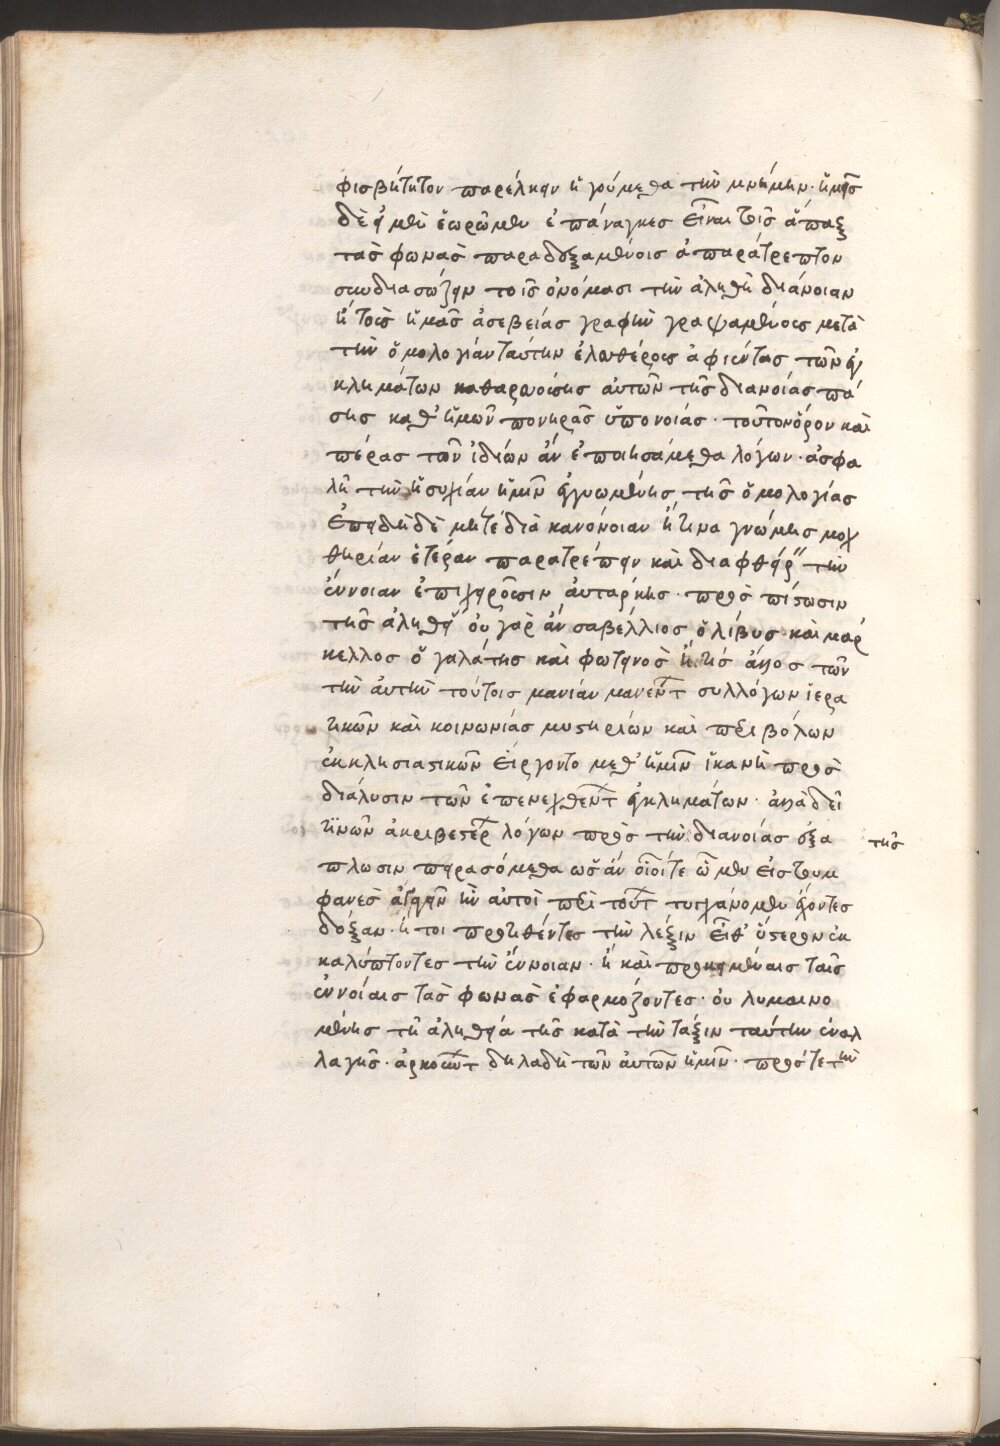 φισβήτητον παρέλκειν ἡγούμεθα τὴν μνήμην· ἡμεῖς
δὲ εἰ μὲν ἑωρῶμεν ἐπάναγκες εἶναι τοῖς ἅπαξ
τὰς φωνὰς παραδεξαμένοις ἀπαράτρεπτον
συνδιασώζειν τοῖς ὀνόμασι τὴν ἀληθῆ διάνοιαν
ἢ τοὺς ἡμᾶς ἀσεβείας γραφὴν γραψαμένους μετὰ
τὴν ὁμολογίαν ταύτην ἐλευθέρους ἀφιέντας τῶν ἐγ
κλημάτων καθαρευούσης αὐτῶν τῆς διανοίας πά
σης καθ' ἡμῶν πονηρᾶς ὑπονοίας· τοῦτον ὅρον καὶ
πέρας τῶν ἰδίων ἂν ἐποιησάμεθα λόγων· ἀσφα
λῆ τὴν ἡσυχίαν ἡμῖν ἐγγυωμένης τῆς ὁμολογίας
ἐπειδὴ δὲ μήτε διὰ κανόνοιαν ἥτινα γνώμης μοχ
θηρίαν ἑτέραν παρατρέπειν καὶ διαφθείρειν τὴν
ἔννοιαν ἐπιχειροῦσιν αὐτάρκης· πρὸς πίστωσιν
τῆς ἀληθείας οὐ γὰρ ἂν σαβέλλιος ὁ λίβυς καὶ μάρ
κελλος ὁ γαλάτης καὶ φωτεινὸς ἤ τις ἄλλος τῶν
τὴν αὐτὴν τούτοις μανίαν μανέντων συλλόγων ἱερα
τικῶν καὶ κοινωνίας μυστηρίων καὶ περιβόλων
ἐκκλησιαστικῶν εἴργοντο μεθ' ἡμῖν ἱκανὴ πρὸς
διάλυσιν τῶν ἐπενεχθέντων ἐγκλημάτων· ἀλλὰ δεῖ
τινῶν ἀκριβεστέρων λόγων πρὸς τὴν διανοίας ἐξα τῆς
πλωσιν πειρασόμεθα ὡς ἂν οἷοί τε ὦμεν εἰς τουμ
φανὲς ἄγειν ἣν αὐτοὶ περὶ τούτων τυγχάνομεν ἔχοντες
δόξαν· ἤτοι προτιθέντες τὴν λέξιν εἶθ' ὕστερον ἐκ
καλύπτοντες τὴν ἔννοιαν· ἢ καὶ προκειμέναις ταῖς
ἐννοίαις τὰς φωνὰς ἐφαρμόζοντες· οὐ λυμαινο
μένης τῇ ἀληθείᾳ τῆς κατὰ τὴν τάξιν ταύτην ἐναλ
λαγῆς· ἀρκούντων δηλαδὴ τῶν αὐτῶν ἡμῖν· πρός τε τὴν